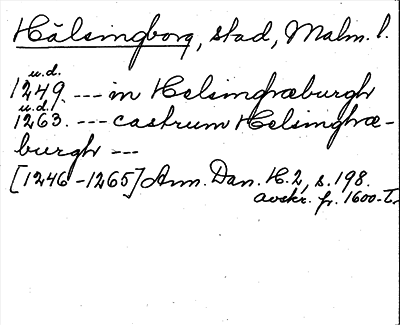 Hälsingborg, stad, Malm. l.
u.d.
1249. --- in Helsinghæburgh
u.d.
1263. --- castrum Helsinghæ-
burgh ---
[1246-1265] Ann. Dan. H. 2, s. 198.
avskr. fr. 1600-t.